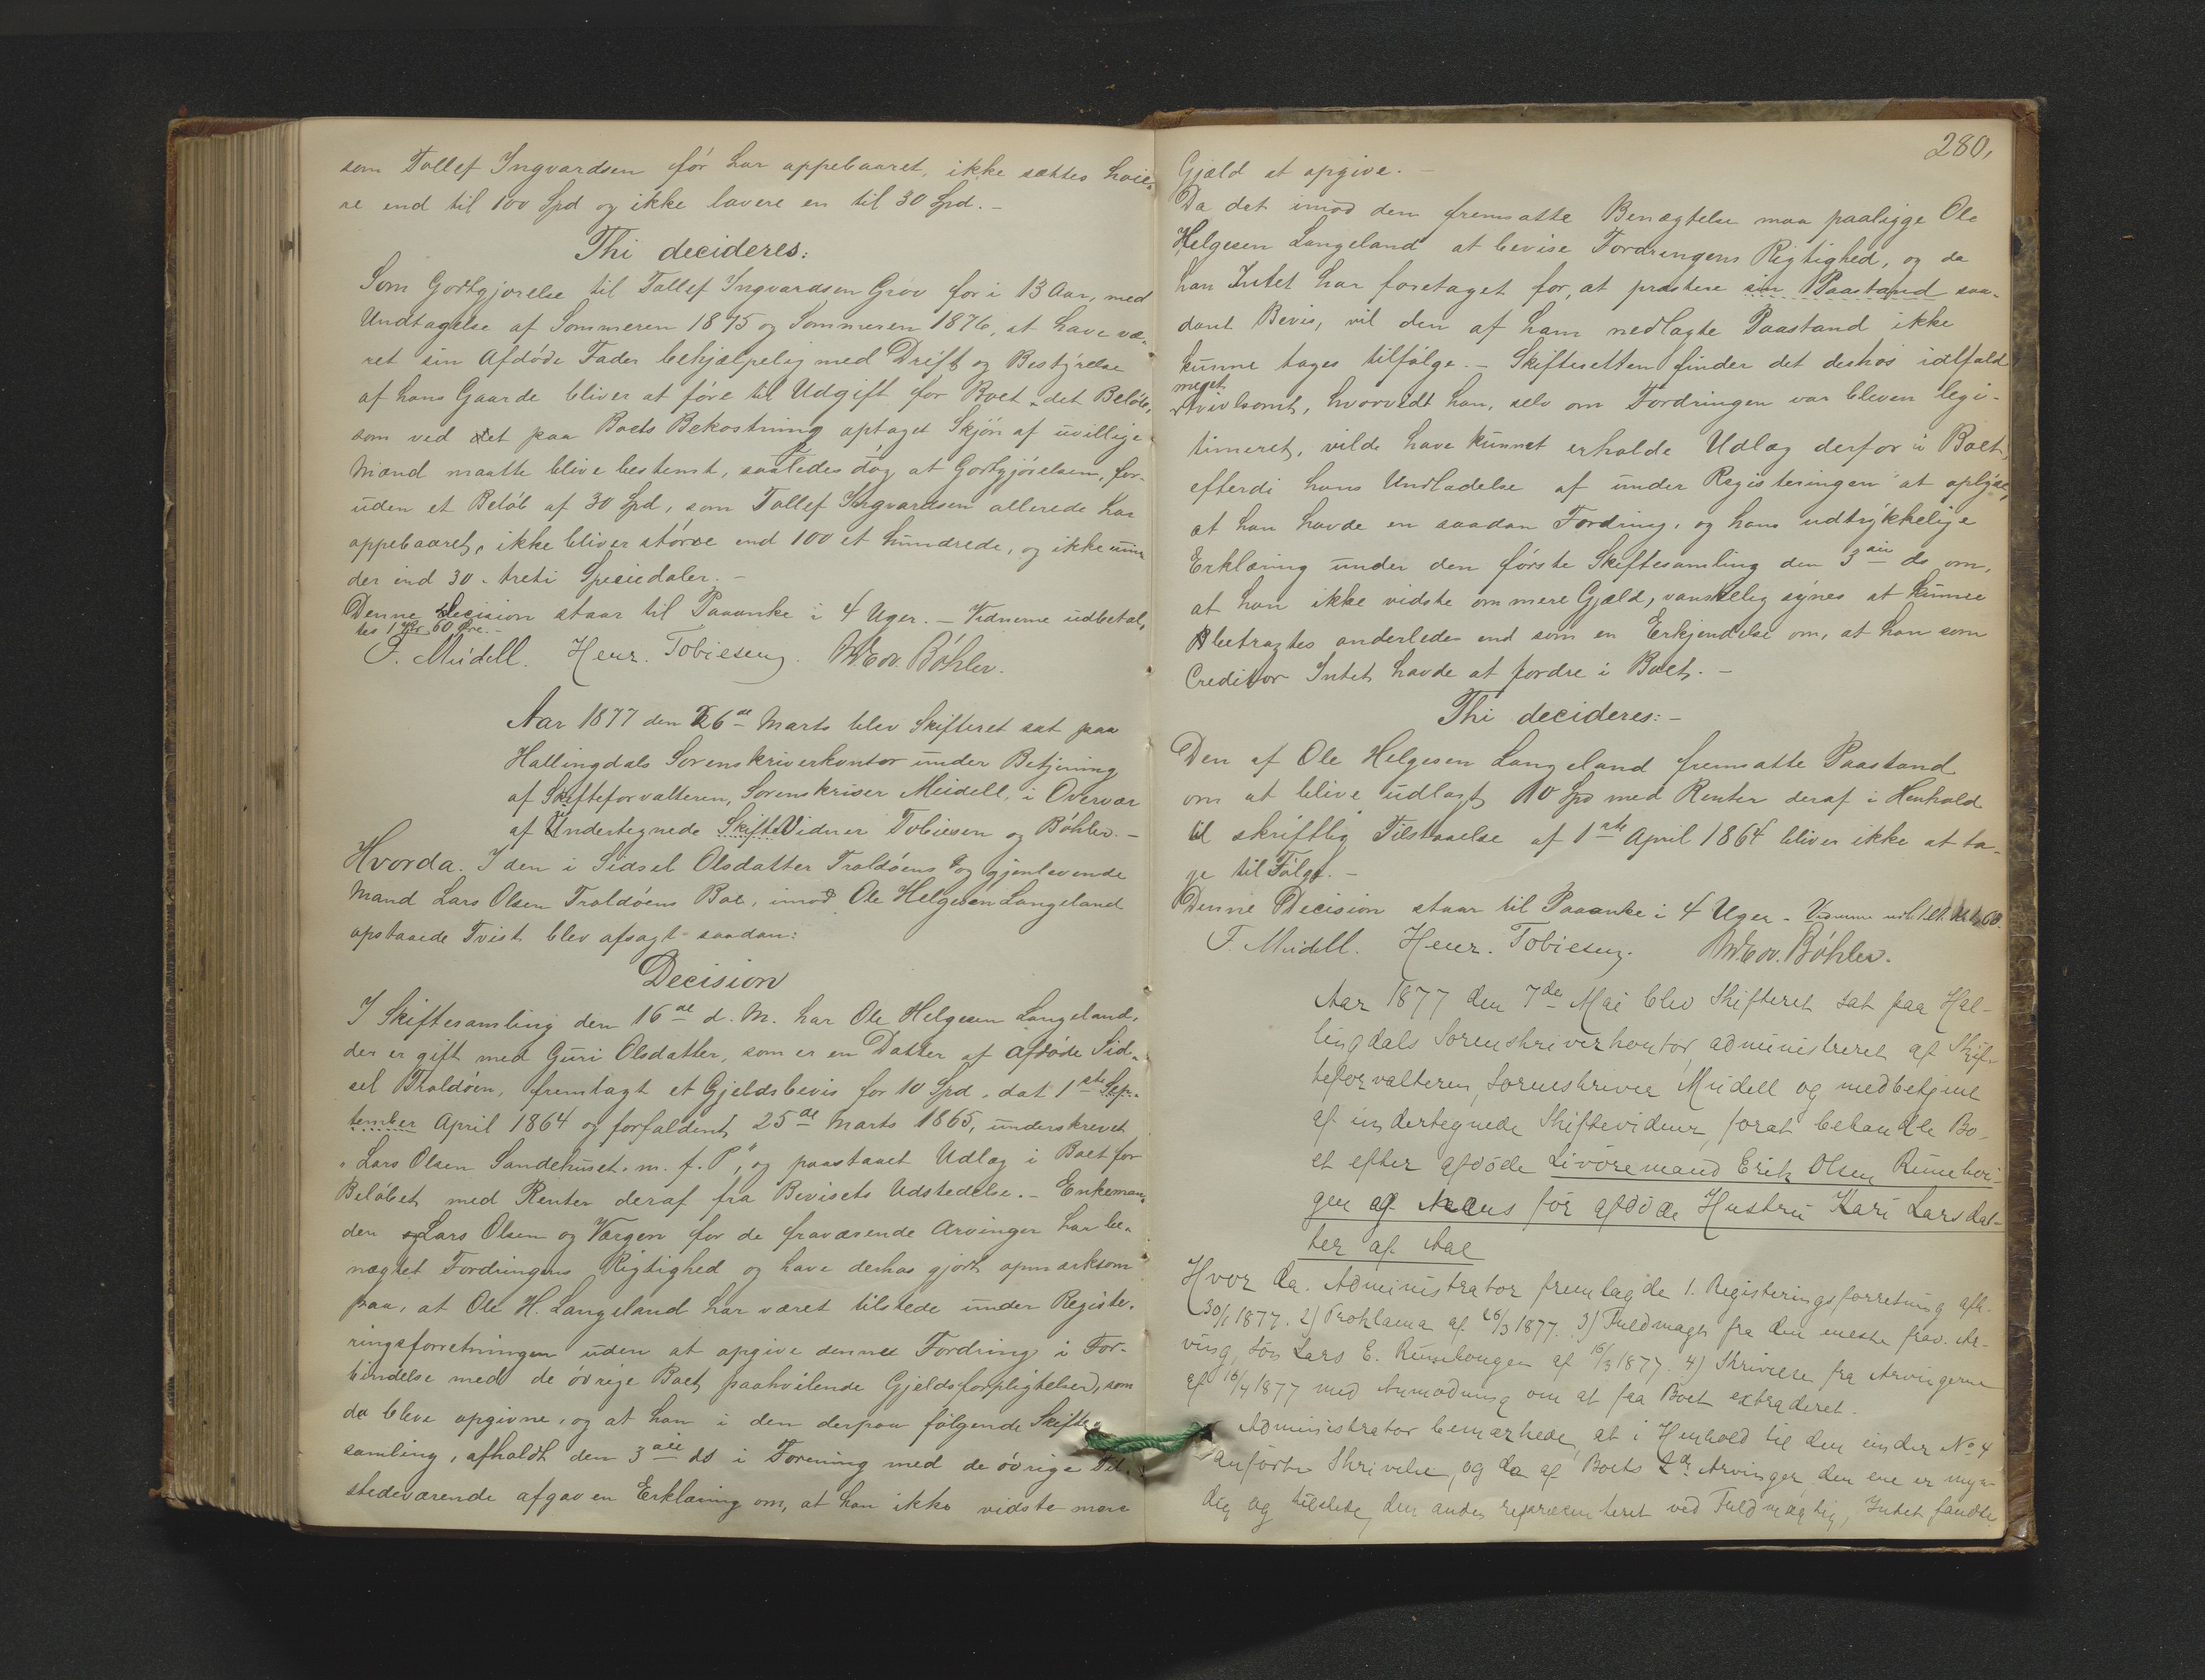 som Tollef Ingvardsen før har oppebaaret, ikke sættes høie-
re end til 100 Spd og ikke lavere en til 30 Spd. –
Thi decideres:
Som Godtgjørelse til Tollef Ingvardsen Grøv for i 13 Aar, med
Undtagelse af Sommeren 1875 og Sommeren 1876, at have væ-
ret sin Afdøde Fader behjælpelig med Drift og Bestyrelse
af hans Gaarde bliver at føre til Udgift for Boet det Beløb,
som ved et paa Boets Bekostning optaget Skjøn af uvillige
Mænd maatte blive bestemt, saaledes dog at Godtgjørelsen, for-
uden et Beløb af 30 Spd, som Tollef Ingvardsen allerede har
oppebaaret, ikke bliver større end 100 et hundrede, og ikke min
der end 30 – treti Speciedaler. –
Denne Decision staar til Paaanke i 4 Uger. – Vidnerne udbetal-
tes 1 Kr 60 Øre. –
F. Meidell. Henr. Tobiesen. Böhler.
Aar 1877 den 26de Marts blev Skifteret sat paa
Hallingdals Sorenskriverkontor under Betjening
af Skifteforvalteren, Sorenskriver Meidell, i Overvær
af Undertegnede SkifteVidner Tobiesen og Böhler. –
Hvorda. I den i Sidsel Olsdatter Traldøens og gjenlevende
Mand Lars Olsen Traldøens Bo, imod Ole Helgesen Langeland
opstaaede Tvist blev afsagt saadan:
Decision
I Skiftesamling den 16de d. M. har Ole Helgesen Langeland,
der er gift med Guri Olsdatter, som er en Datter af afdøde Sid-
sel Traldøen, fremlagt et Gjeldsbevis for 10 Spd, dat 1ste Sep-
tember April 1864 og forfaldent 25de Marts 1865, underskrevet
"Lars Olsen Sandehuset. m. f. P", og paastaaet Udlæg i Boet for
Beløbet med Renter deraf fra Bevisets Udstedelse. – Enkeman-
den Lars Olsen og Værgen for de fraværende Arvinger har be-
nægtet Fordringens Rigtighed og have derhos gjort opmærksom
paa, at Ole H. Langeland har været tilstede under Registe-
ringsforretningen uden at opgive denne Fordring i For-
bindelse med de øvrige Boet paahvilende Gjeldsforpligtelser, som
da bleve opgivne, og at han i den derpaa følgende Skifte-
samling, afholdt den 3die ds i Forening med de øvrige Til-
stedeværende afgav en Erklæring om, at han ikke vidste mere
280,
Gjæld at opgive. –
Da det imod den fremsatte Benægtelse maa paaligge Ole
Helgesen Langeland at bevise Fordringens Rigtighed, og da
han Intet har foretaget for, at præstere sin Paastand saa-
dant Bevis, vil den af ham nedlagte Paastand ikke
kunne tages tilfølge. – Skifteretten finder det deshos ialfald
meget
tvivlsomt, hvorvidt han, selv om Fordringen var bleven legi-
timeret, vilde have kunnet erholde Udlæg derfor i Boet,
efterdi hans Undladelse af under Registeringen at oplyse,
at han havde en saadan Fordring, og hans udtrykkelige
Erklæring under den første Skiftesamling den 3die ds om,
at han ikke vidste om mere Gjæld, vanskelig synes at kunne
betragtes anderledes end som en Erkjendelse om, at han som
Creditor Intet havde at fordre i Boet. –
Thi decideres: –
Den af Ole Helgesen Langeland fremsatte Paastand
om at blive udlagt 10 Spd med Renter deraf i Henhold
til skriftlig Tilstaaelse af 1ste April 1864 bliver ikke at ta-
ge til Følge. –
Denne Decision staar til Paaanke i 4 Uger.
F. Meidell. Henr. Tobiesen. Böhler.
Aar 1877 den 7de Mai blev Skifteret sat paa Hal-
lingdals Sorenskriverkontor, administreret af Skif-
teforvalteren, Sorenskriver Meidell og medbetjent
af undertegnede Skiftevidner, forat behandle Bo-
et efter afdøde Livøremand Erik Olsen Runehou-
gen og hans før afdøde Hustru Kari Larsdat-
ter af Aal
Hvor da. Administrator fremlagde 1. Registeringsforretning afh.
30/1 1877. 2) Proklama af 26/3 1877. 3) Fuldmagt fra den eneste frav. Ar-
ving, Søn Lars E. Runehougen af 16/3 1877. 4) Skrivelse fra Arvingerne
af 16/4 1877 med Anmodning om at faa Boet extraderet.
Administrator bemærkede, at i Henhold til den under No 4
anførte Skrivelse, og da af Boets 2de Arvinger den ene er myn-
dig og tilstede, den anden repræsenteret ved Fuldmægtig, Intet fandtes